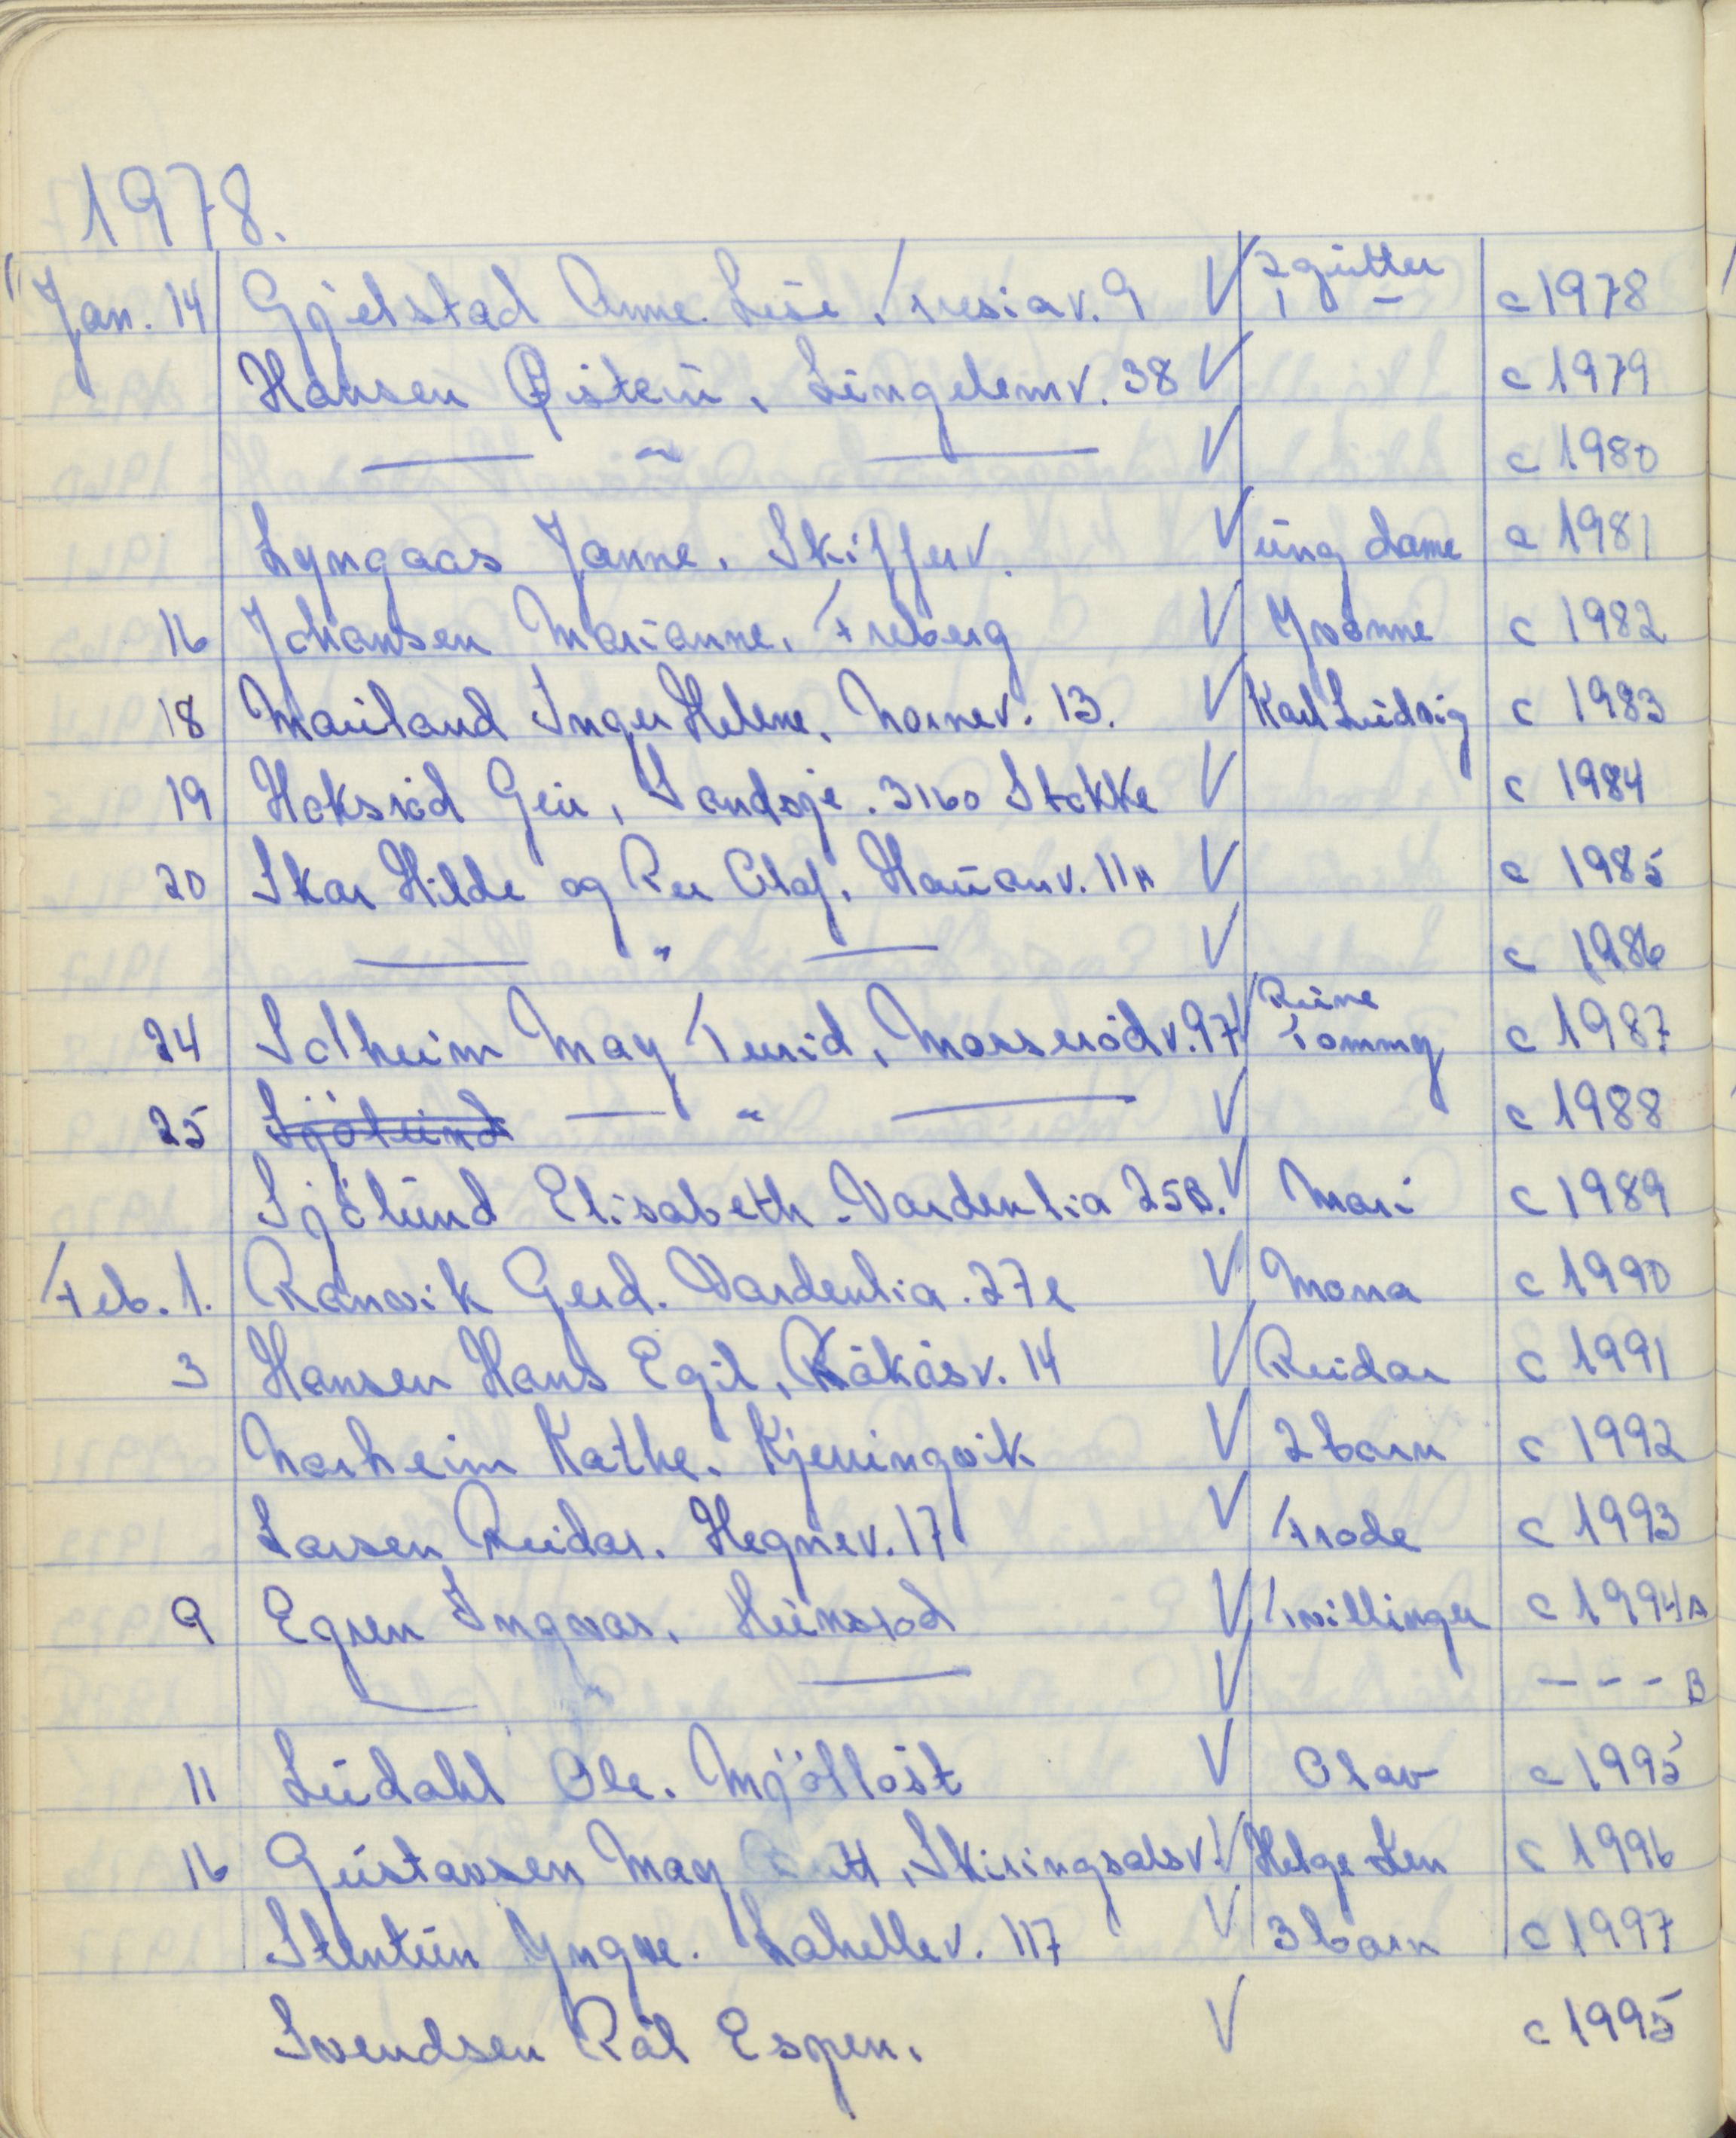 1978.
Jan. 14 Gjelstad Anne Lise, Fresiav. 9 V 2 gutter 1 – c 1978
Hansen Øistein, Lingelemv. 38 V c 1979
— " — V c 1980
Lyngaas Janne, Skifferv. V ung dame c 1981
16 Johansen Marianne, Freberg V Yvonne c 1982
18 Mauland Inger Helene, Nornev. 13. V Karl Ludvig c 1983
19 Hoksröd Geir, Sundsje. 3160 Stokke V c 1984
20 Skar Hilde og Per Olaf, Haüanv. 11A V c 1985
— " — V c 1986
24 Solheim May Turid, Mosserödv. 97 V Rune Tommy c 1987
25 Sjölund — " — V c 1988
Sjölund Elisabeth. Vardenlia 25B. V Mari c 1989
Feb. 1. Ranvik Gerd. Vardenlia. 27e V Mona c 1990
3 Hansen Hans Egil, Råkåsv. 14 V Reidar c 1991
Norheim Kathe. Kjerringvik V 2 barn c 1992
Larsen Reidar. Hegnev. 17 V Frode c 1993
9 Egren Ingvar, Hünsröd V Tvillinger c 1994 A
— " — V - - - B
11 Lüdahl Ole. Mjölløst V Olav c 1995
16 Gustavsen May Britt, Skiringsalsv. V Helge Ken c 1996
Stentün Yngve. Lahellev. 117 V 3 barn c 1997
Svendsen Pål Espen. V c 1995